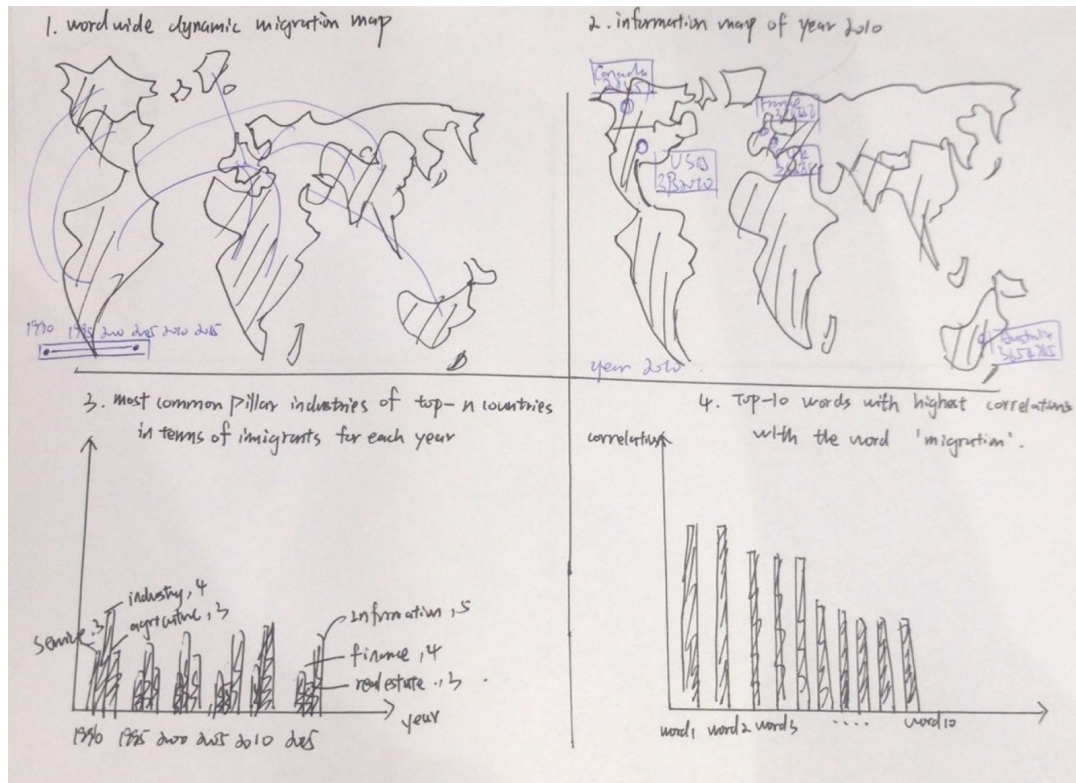 1. wordwide dynamic migration map
1990 1995 200 2005 2010 2015
2. information map of year 2010
Canada
France
USA
UK
Australia
year 2010
3. most common pillar industries of top-n countries
in terms of imigrants for each year
industry, 4
agriculture, 3
service, 3
information, 5
finance, 4
realestate, 3
year
1990 1995 2000 2005 2010 2015
4. Top-10 words with highest correlations
with the word 'migration'.
correlation
word1 word2 word3 ..... word10